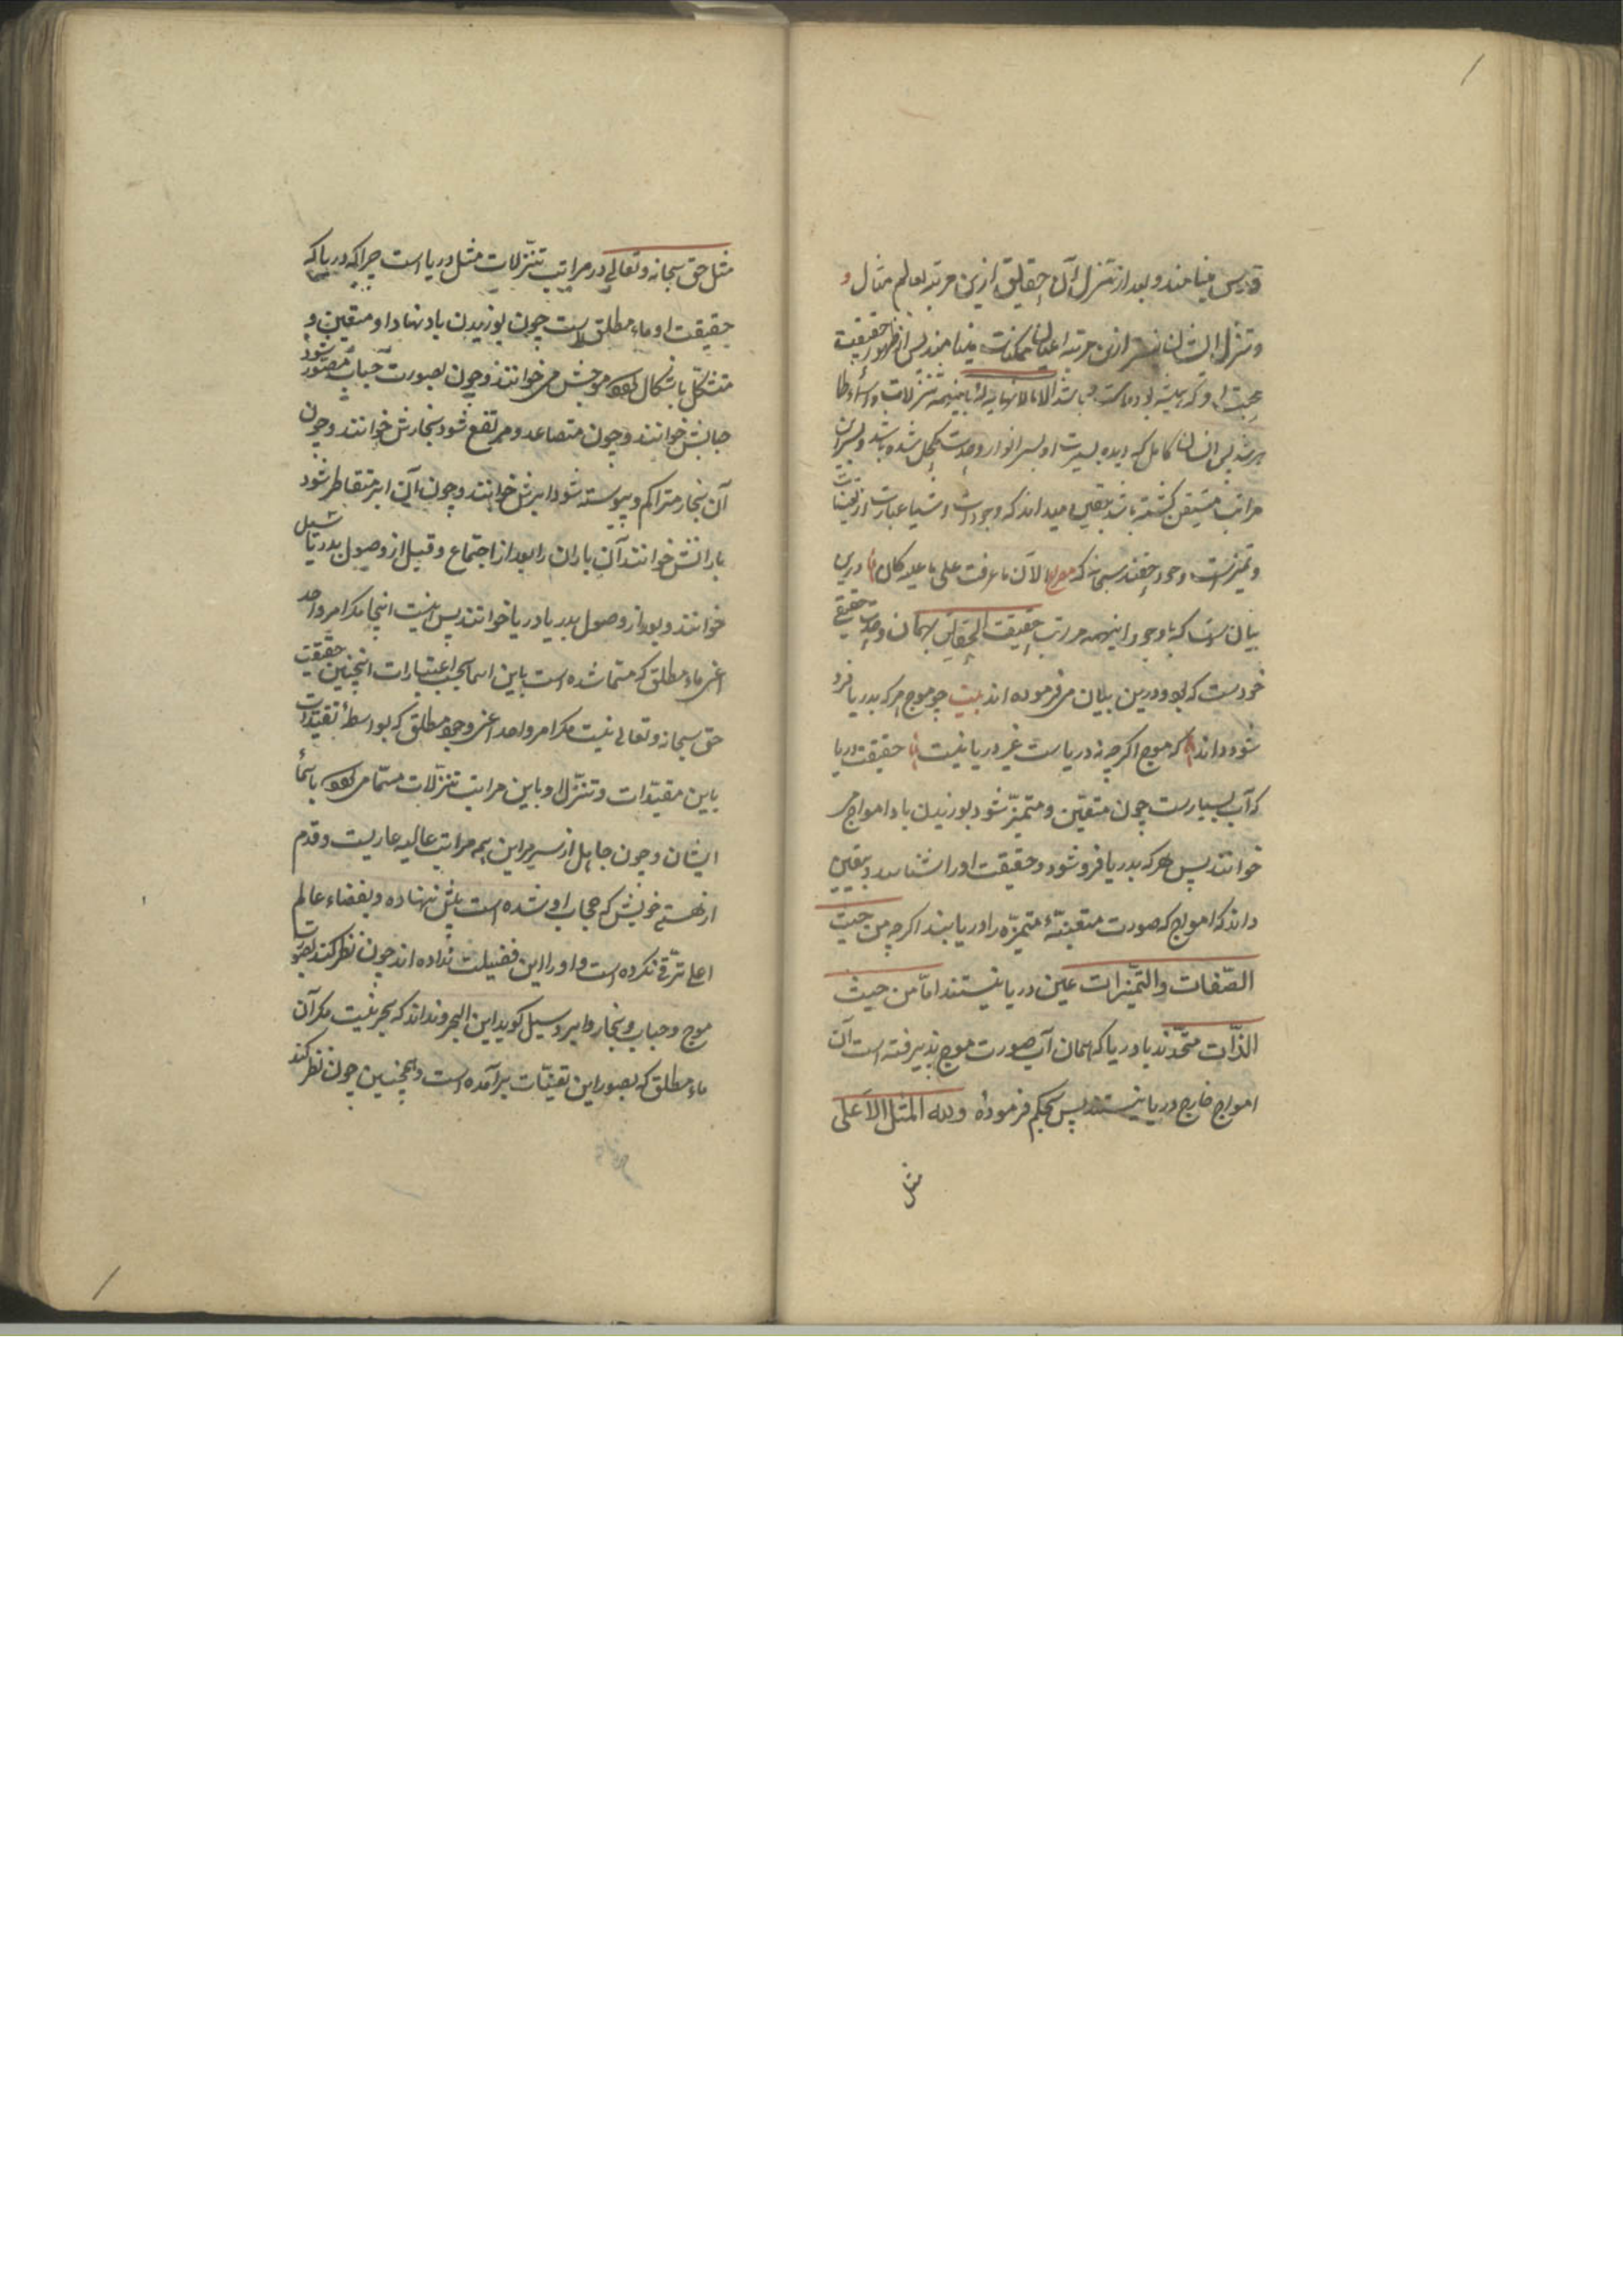 قدس مینامند و بعد از تنزل آن حقایق ازین مرتبه بعالم مثال و
و تنزل ایشان نیز ازین مرتبه اعیان ممکنات مینامند پس از ظهور حقیقت
مراتب متیقن گشته باشد بیقین میداند که وجود اشیا عبارت از تعینات
و تمیزاتست وجود حقند سبحانه که الآن ما عرفت علی ما علیه کان در این
بیان است که با وجود اینهمه مراتب حقیقت الحقایق بهمان وحدت حقیقی
خودست که بود و درین بیان می فرموده اند بیت چو موج هر که بدریا فرو
شود داند که موج اگر چه نه دریاست غیر دریا نیست حقیقت دریا
که آب بسیارست چون متعین و متمیز شود بوزیدن باد امواج می
خوانند پس هر که بدریا فرو شود و حقیقت او را شناسد و بیقین
داند که امواج که صورت متعینهٔ متمیزه را دریابند اگر چه من حیث
الصفات والتمیزات عین دریا نیستند اما من حیث
الذات متحدند با دریا که همان آب صورت موج پذیرفته است آن
امواج خارج دریا نیستند پس بحکم فرمودهٔ ولله المثل الاعلی
مثل
مثل حق سبحانه و تعالی در مراتب تنزلات مثل دریا است چرا که دریا که
حقیقت او ماء مطلق است چون بوزیدن باد نهاد او متعین و
متشکل باشکال موجش می خوانند و چون بصورت حباب مصور شود
حبابش خوانند و چون متصاعد و مرتفع شود بخارش خوانند و چون
آن بخار متراکم و پیوسته شود ابرش خوانند و چون آن ابر متقاطر شود
بارانش خوانند آن باران را بعد از اجتماع و قبل از وصول بدریا سیل
خوانند و بعد از وصول بدریا دریا خوانند پس نیست اینجا مگر امر واحد
اعنی ماء مطلق که مسما شده است باین اسما بحسب اعتبارات همچنین حقیقت
حق سبحانه و تعالی نیست مگر امر واحد اعنی وجود مطلق که بواسطهٔ تقیدات
باین مقیدات و تنزل او باین مراتب تنزلات مسما می باسمأ
ایشان و چون جاهل از سر براین همه مراتب عالیه عاریست و قدم
از هستی خویش که حجاب او شده است پیش ننهاده و بفضاء عالم
اعلی ترقی نکرده است و او را این فضیلت نداده اند چون نظر کند بصورت
موج و حباب و بخار و ابر و سیل گوید این البحر و نداند که بحر نیست مگر آن
ماء مطلق که بصور این تعینات برآمده است و همچنین چون نظر کند